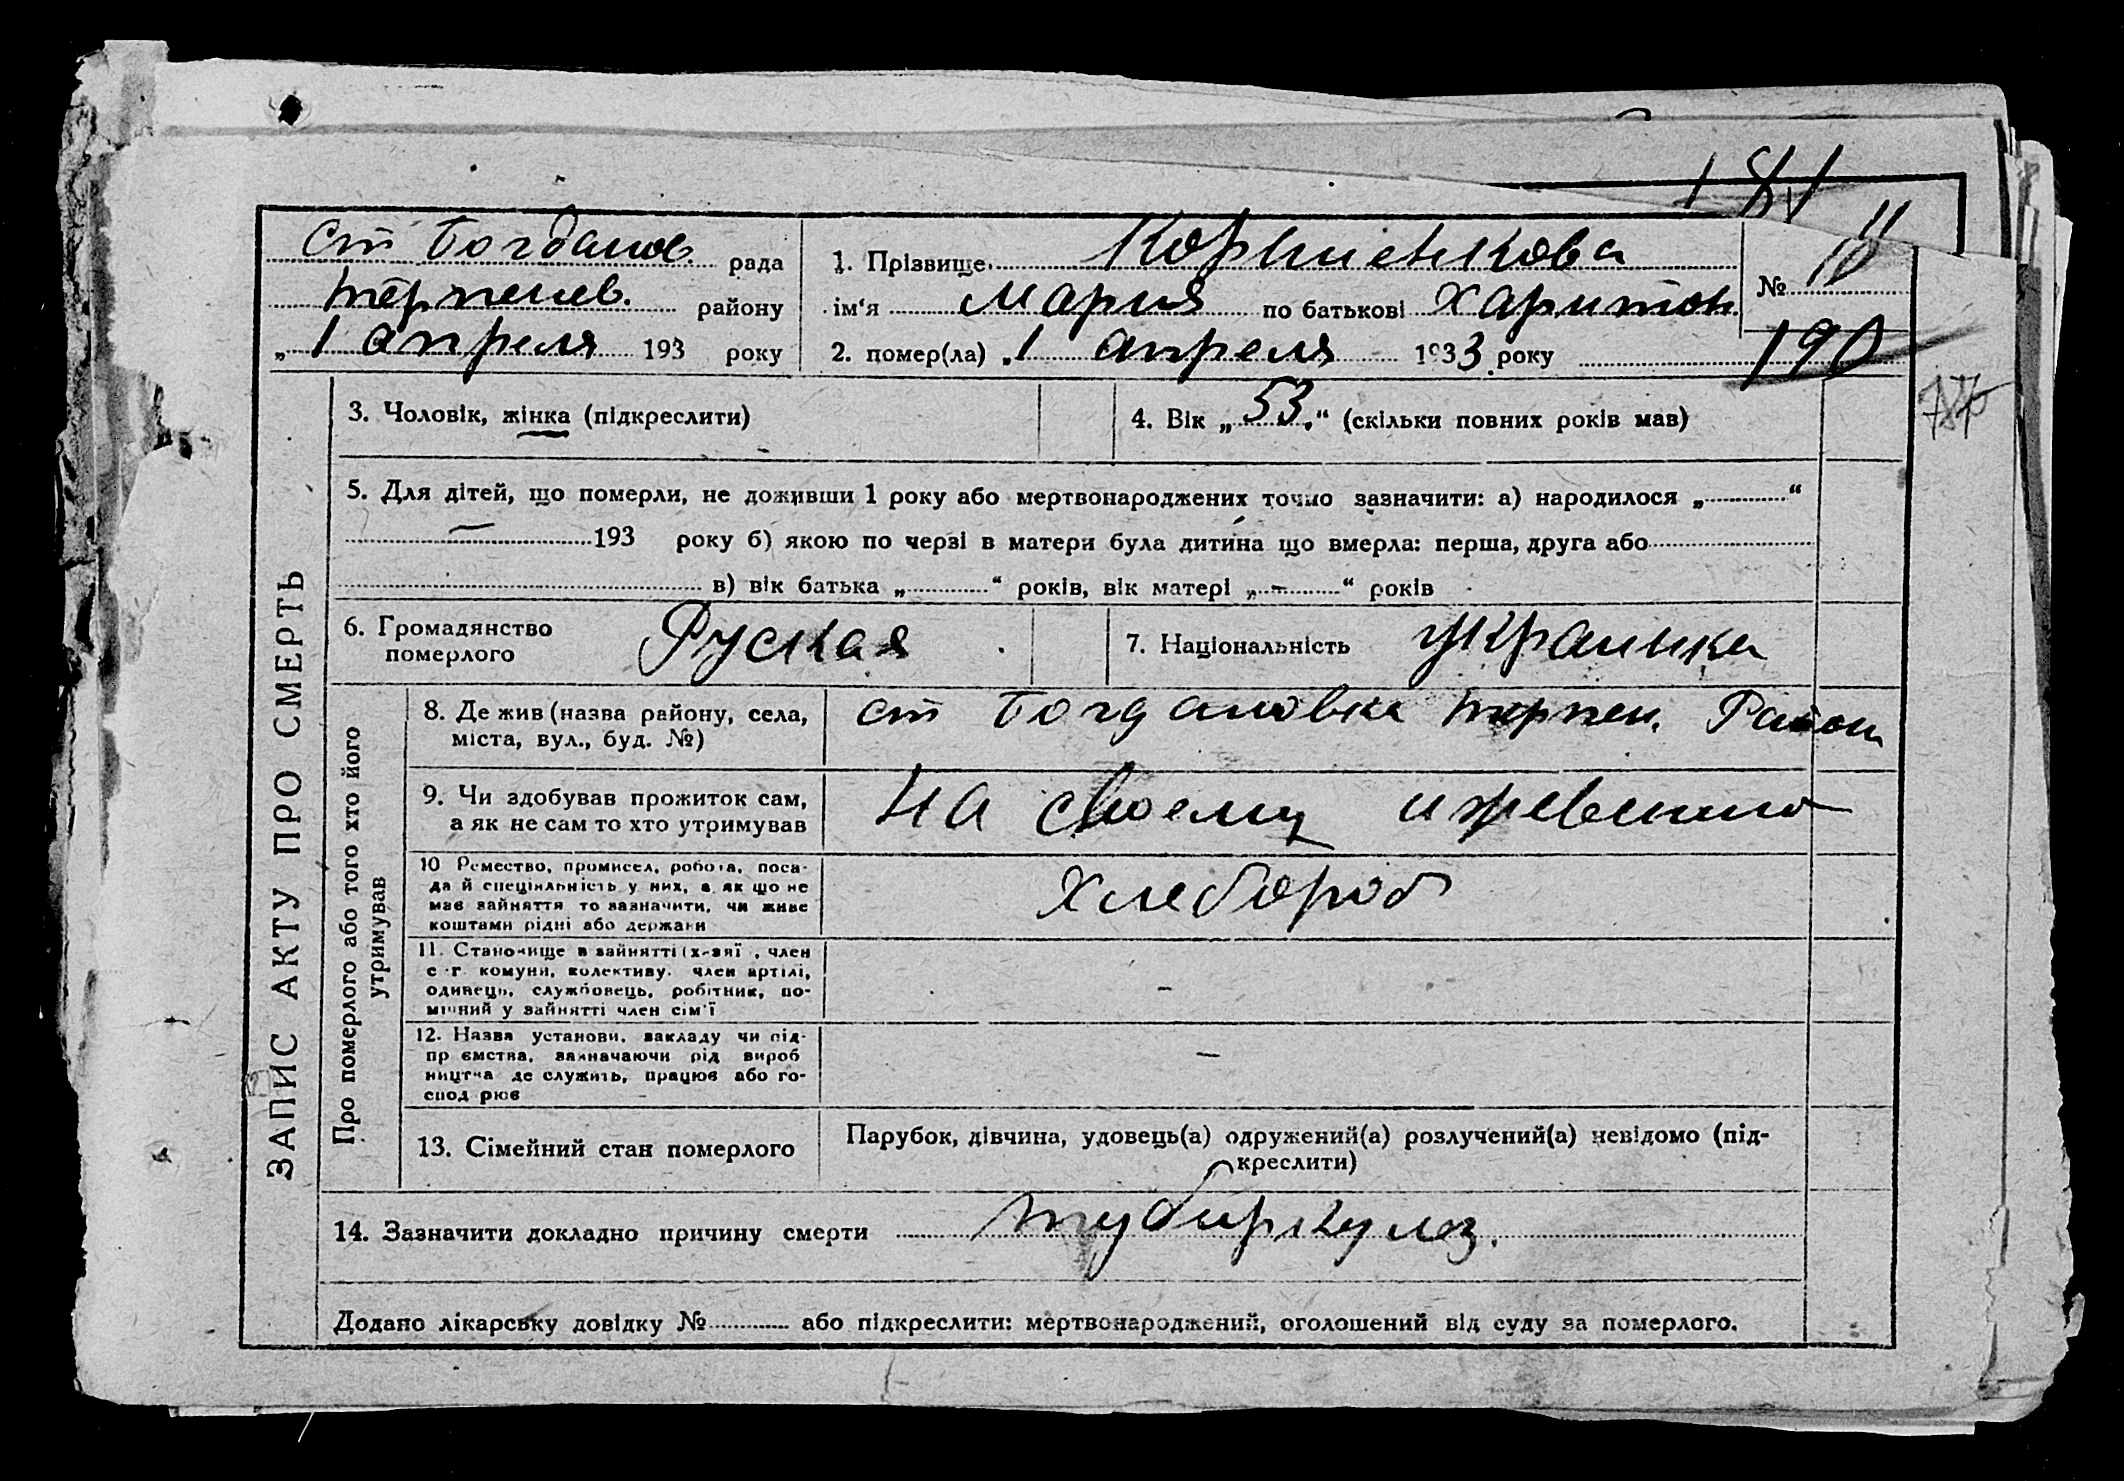 181
ст Богданов. рада
терпенев. району
„1 апреля 193 року
1. Прізвище Корниенкова
ім‘я Мария по батькові Харитон
2. помер(ла) „1 апреля 1933 року
№ 10
190
3. Чоловік, жінка (підкреслити)
4. Вік „53“ (скільки повних років мав)
5. Для дітей, що померли, не доживши 1 року або мертвонароджених точно зазначити: а) народилося „ “
— 193 року б) якою по черзі в матери була дитина що вмерла: перша, друга або
в) вік батька „ “ років, вік матері „ – “ років
6. Громадянство
померлого
Руская
7. Національність украинка
ЗАПИС АКТУ ПРО СМЕРТЬ
Про померлого або того хто його
утримував
8. Де жив (назва району, села,
міста, вул., буд. №)
ст Богдановка терпен. Район
9. Чи здобував прожиток сам,
а як не сам то хто утримував
На своему ижревении
10 Ремество, промисел, робота, поса-
да й спеціяльність у них, а як що не
має зайняття то зазначити, чи живе
коштами рідні або держави
Хлебороб
11. Становище в зайнятті (х-зяї , член
с-г. комуни, колективу. член артілі,
одинець, службовець, робітник, по-
мічний у зайнятті член сім'ї
–
12. Назва установи, закладу чи під-
пр ємства, зазначаючи рід вироб
ництва де служить, працює або го-
спод рює
–
13. Сімейний стан померлого
Парубок, дівчина, удовець(а) одружений(а) розлучений(а) невідомо (під-
креслити)
14. Зазначити докладно причину смерти туберкулез.
Додано лікарську довідку № або підкреслити: мертвонароджений, оголошений від суду за померлого.